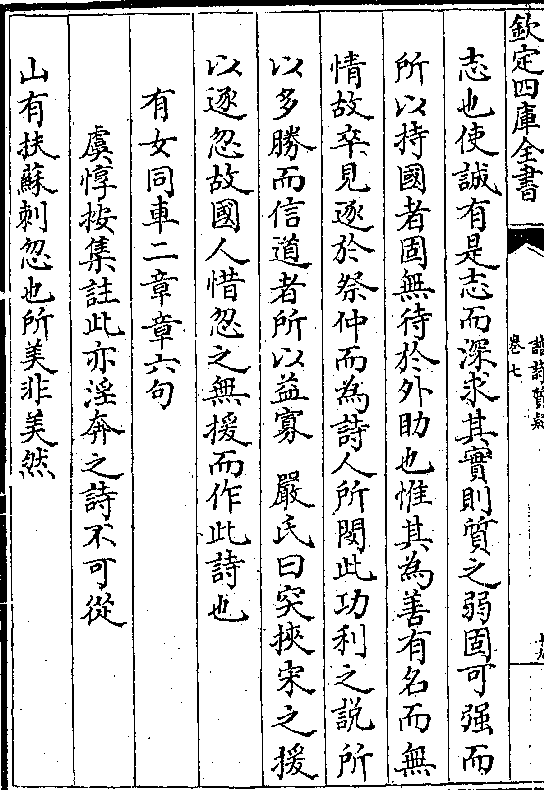 欽定四庫全書
卷七
志也使誠有是志而深求其實則質之弱固可强而
所以持國者固無待於外助也惟其為善有名而無
情故卒見逐於祭仲而為詩人所閔此功利之説所
以多勝而信道者所以益寡　嚴氏曰突挾宋之援
以逐忽故國人惜忽之無援而作此詩也
有女同車二章章六句
虞惇按集註此亦淫奔之詩不可從
山有扶蘇刺忽也所美非美然